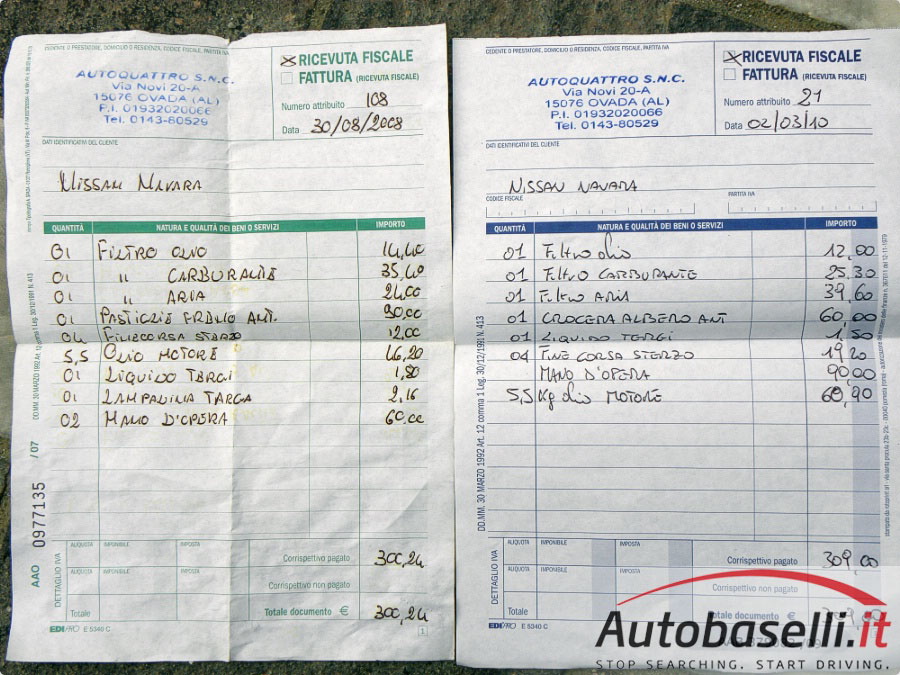 CEDENTE O PRESTATORE, DOMICILIO O RESIDENZA, CODICE FISCALE, PARTITA IVA
AUTOQUATTRO S.N.C.
Via Novi 20-A
15076 OVADA (AL)
P.I. 01932020066
Tel. 0143-80529
X RICEVUTA FISCALE
FATTURA (RICEVUTA FISCALE)
Numero attribuito 108
Data 30/08/2008
DATI IDENTIFICATIVI DEL CLIENTE
NISSAN NAVARA
QUANTITÀ NATURA E QUALITÀ DEI BENI O SERVIZI IMPORTO
01 FILTRO OLIO 14,40
01 " CARBURANTE 35,40
01 " ARIA 24,00
01 PASTICLIE FRENO ANT. 90,00
04 FINECORSA STERZO 12,00
5,5 OLIO MOTORE 46,20
01 LIQUIDO TERGI 1,80
01 LAMPADINA TARGA 2,16
02 MANO D'OPERA 60,00
DD.MM. 30 MARZO 1992 Art. 12 comma 1 Leg. 30/12/1991 N. 413
AAO 0977135 / 07
DETTAGLIO IVA
ALIQUOTA IMPONIBILE IMPOSTA
Corrispettivo pagato 300,24
ALIQUOTA IMPONIBILE IMPOSTA
Corrispettivo non pagato
Totale
Totale documento € 300,24
EDIPRO E 5340 C
1
CEDENTE O PRESTATORE, DOMICILIO O RESIDENZA, CODICE FISCALE, PARTITA IVA
AUTOQUATTRO S.N.C.
Via Novi 20-A
15076 OVADA (AL)
P.I. 01932020066
Tel. 0143-80529
X RICEVUTA FISCALE
FATTURA (RICEVUTA FISCALE)
Numero attribuito 21
Data 02/03/10
DATI IDENTIFICATIVI DEL CLIENTE
NISSAN NAVARA
CODICE FISCALE PARTITA IVA
QUANTITÀ NATURA E QUALITÀ DEI BENI O SERVIZI IMPORTO
01 Filtro olio 12,00
01 Filtro CARBURANTE 25,30
01 Filtro ARIA 39,60
01 CROCERA ALBERO ANT 60,00
01 LIQUIDO TERGI 1,50
04 FINE CORSA STERZO 19,20
MANO D'OPERA 90,00
5,5 Kg olio MOTORE 60,90
DD.MM. 30 MARZO 1992 Art. 12 comma 1 Leg. 30/12/1991 N. 413
DETTAGLIO IVA
ALIQUOTA IMPONIBILE IMPOSTA
Corrispettivo pagato 309,00
ALIQUOTA IMPONIBILE IMPOSTA
Corrispettivo non pagato
Totale
Totale documento €
EDIPRO E 5340 C
Autobaselli.it
STOP SEARCHING. START DRIVING.